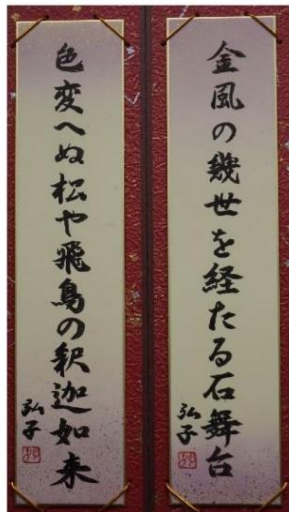 金風の幾世を経たる石舞台
弘子
色変へぬ松や飛鳥の釈迦如来
弘子